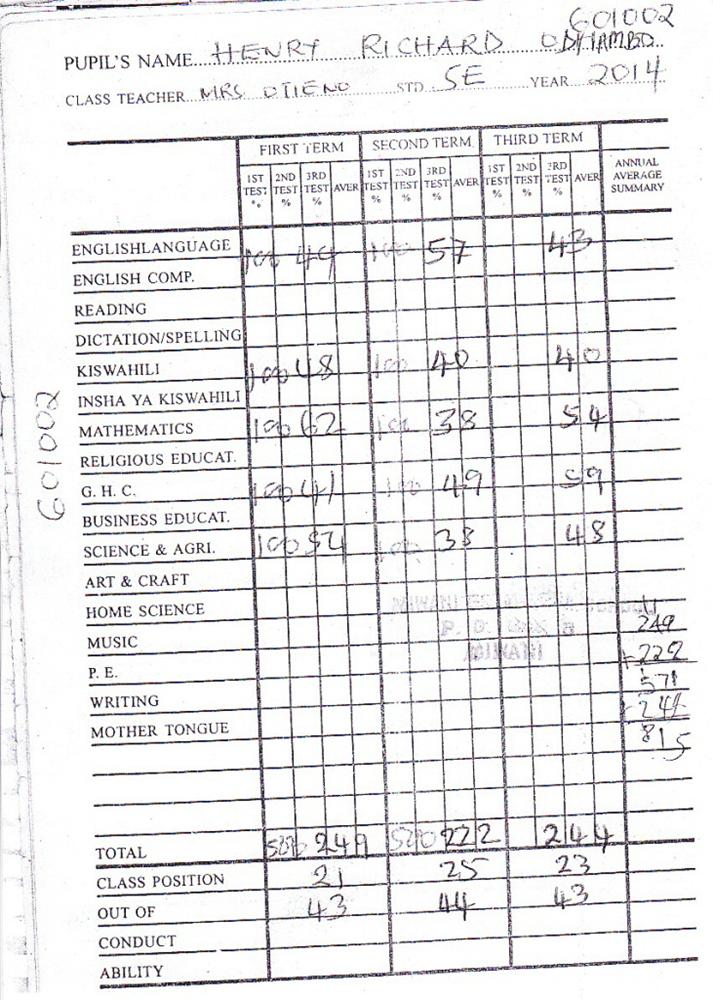 601002
PUPIL'S NAME HENRY RICHARD ODHIAMBO
CLASS TEACHER MRS OTIENO STD. 5E YEAR 2014
FIRST TERM SECOND TERM THIRD TERM
1ST TEST % 2ND TEST % 3RD TEST % AVER 1ST TEST % 2ND TEST % 3RD TEST % AVER 1ST TEST % 2ND TEST % 3RD TEST % AVER ANNUAL AVERAGE SUMMARY
ENGLISHLANGUAGE 100 100 57 43
ENGLISH COMP.
READING
DICTATION/SPELLING
KISWAHILI 100 48 100 40 40
INSHA YA KISWAHILI
MATHEMATICS 100 62 100 38 54
RELIGIOUS EDUCAT.
G. H. C. 100 41 100 49 59
BUSINESS EDUCAT.
SCIENCE & AGRI. 100 54 100 38 48
ART & CRAFT
HOME SCIENCE
MUSIC 249
P. E. +222
WRITING
MOTHER TONGUE 815
TOTAL 500 249 500 222 244
CLASS POSITION 21 25 23
OUT OF 43 44 43
CONDUCT
ABILITY
601002